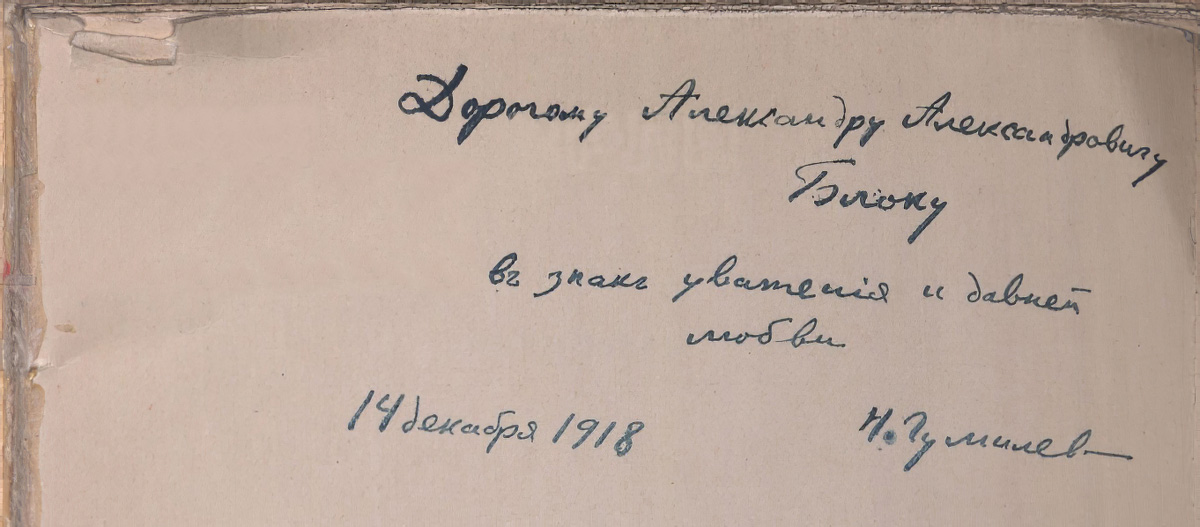 Дорогому Александру Александровичу
Блоку
въ знакъ уваженія и давней
любви
14 декабря 1918 Н. Гумилев